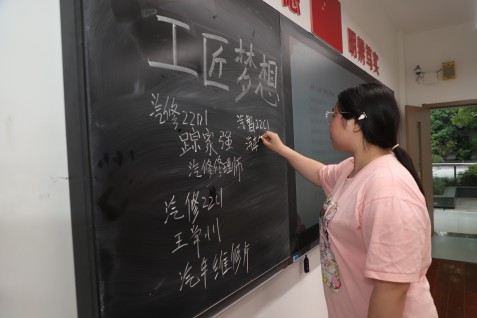 工匠梦想
汽修2201
踪家强
汽修修理师
汽修2201
王学川
汽车维修片
汽智2201
汽车